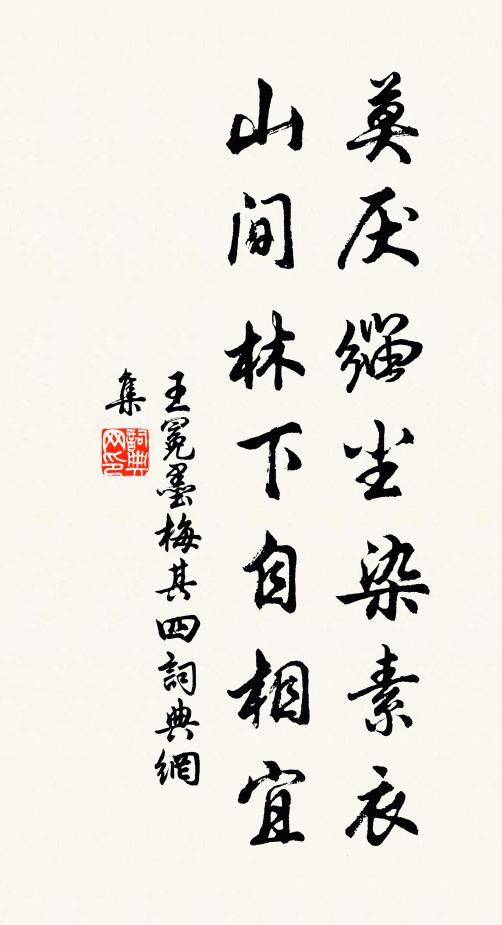 莫厌緇尘染素衣
山间林下自相宜
王冕墨梅其四詞典網
集
詞典网印